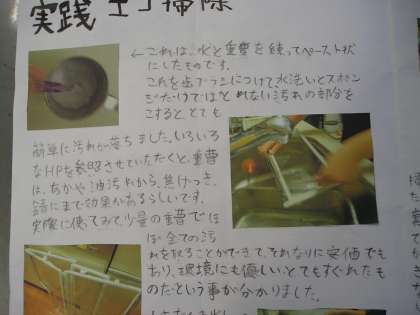 実践 エコ掃除
←これは、水と重曹を練ってペースト状
にしたものです。
これを歯ブラシにつけて、水洗いとスポン
ジだけではとれない汚れの部分を
こすると、とても
簡単に汚れが落ちました。いろいろ
なHPを参照させていただくと、重曹
は、あかや油汚れから、焦げつき、
錆にまで効果があるらしいです。
実際に使ってみて、少量の重曹でほ
ぼ全ての汚
れを取ることができて、それなりに安価でも
あり、環境にも優しいとてもすぐれたも
のだという事が分かりました。